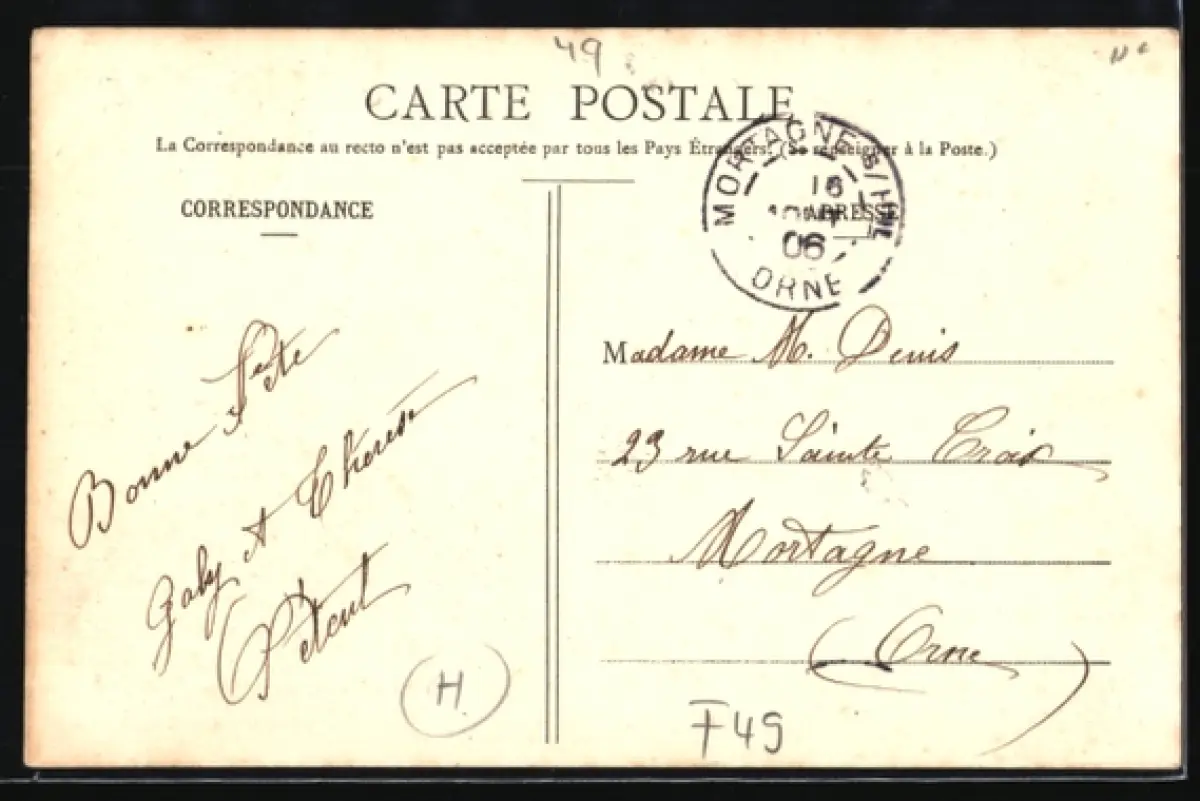 49
CARTE POSTALE
La Correspondance au recto n'est pas acceptée par tous les Pays Étrangers. (Se renseigner à la Poste.)
CORRESPONDANCE
ADRESSE
MORTAGNE S/H
16
06
ORNE
Bonne Fête
Gaby et Therese
Madame M. Denis
23 rue Sainte Croix
Mortagne
(Orne)
H
F49